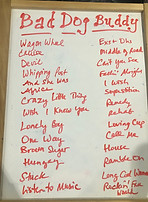 Bad Dog Buddy
Wagon Wheel
Alice
Devil
Whipping Post
And She Was
Africa
Crazy Little Thing
Wish I Knew You
Lonely Boy
One Way
Brown Sugar
Hunger
Stuck
Listen to Music
Middle of Road
Can't You See
Feelin' Alright
I Wish
Superstition
Remedy
Rehab
Loving Cup
Call Me
House
Ramble On
Long Cool Woman
Rockin' Free World